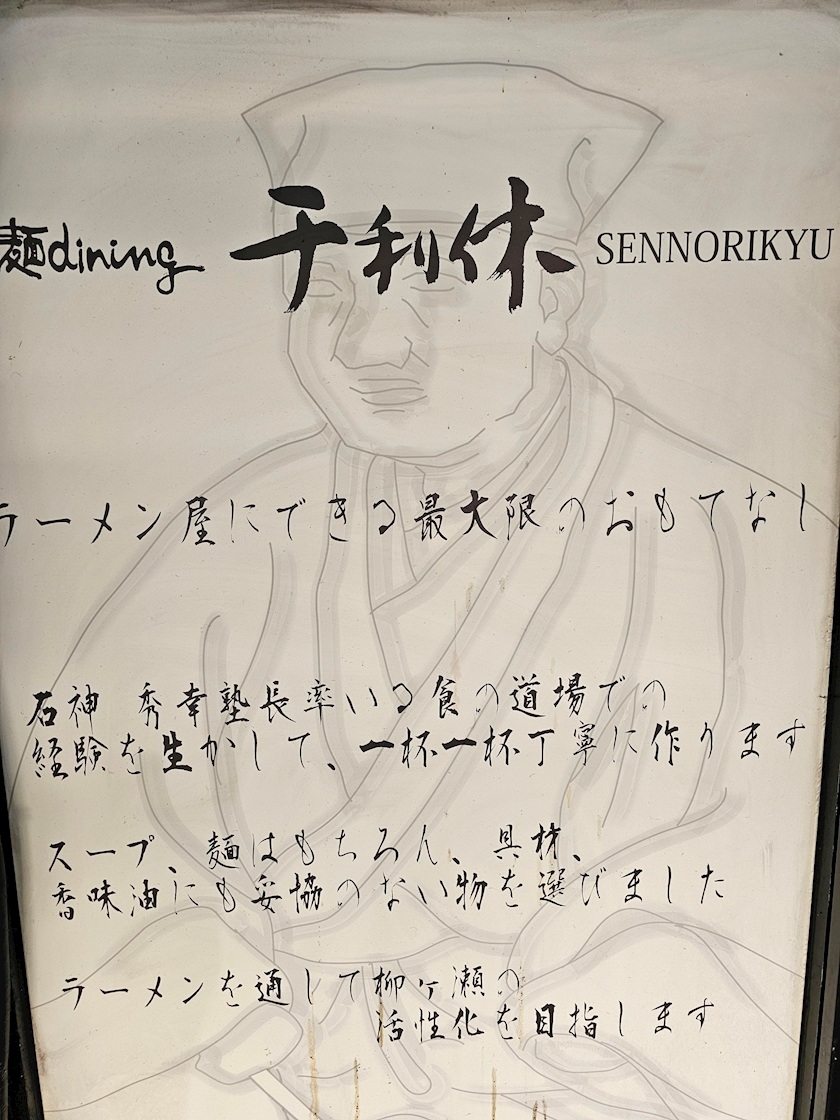 麺dining 千利休 SENNORIKYU
ラーメン屋にできる最大限のおもてなし
石神 秀幸塾長率いる食の道場での
経験を生かして、一杯一杯丁寧に作ります
スープ、麺はもちろん、具材、
香味油にも妥協のない物を選びました
ラーメンを通して柳ヶ瀬の
活性化を目指します